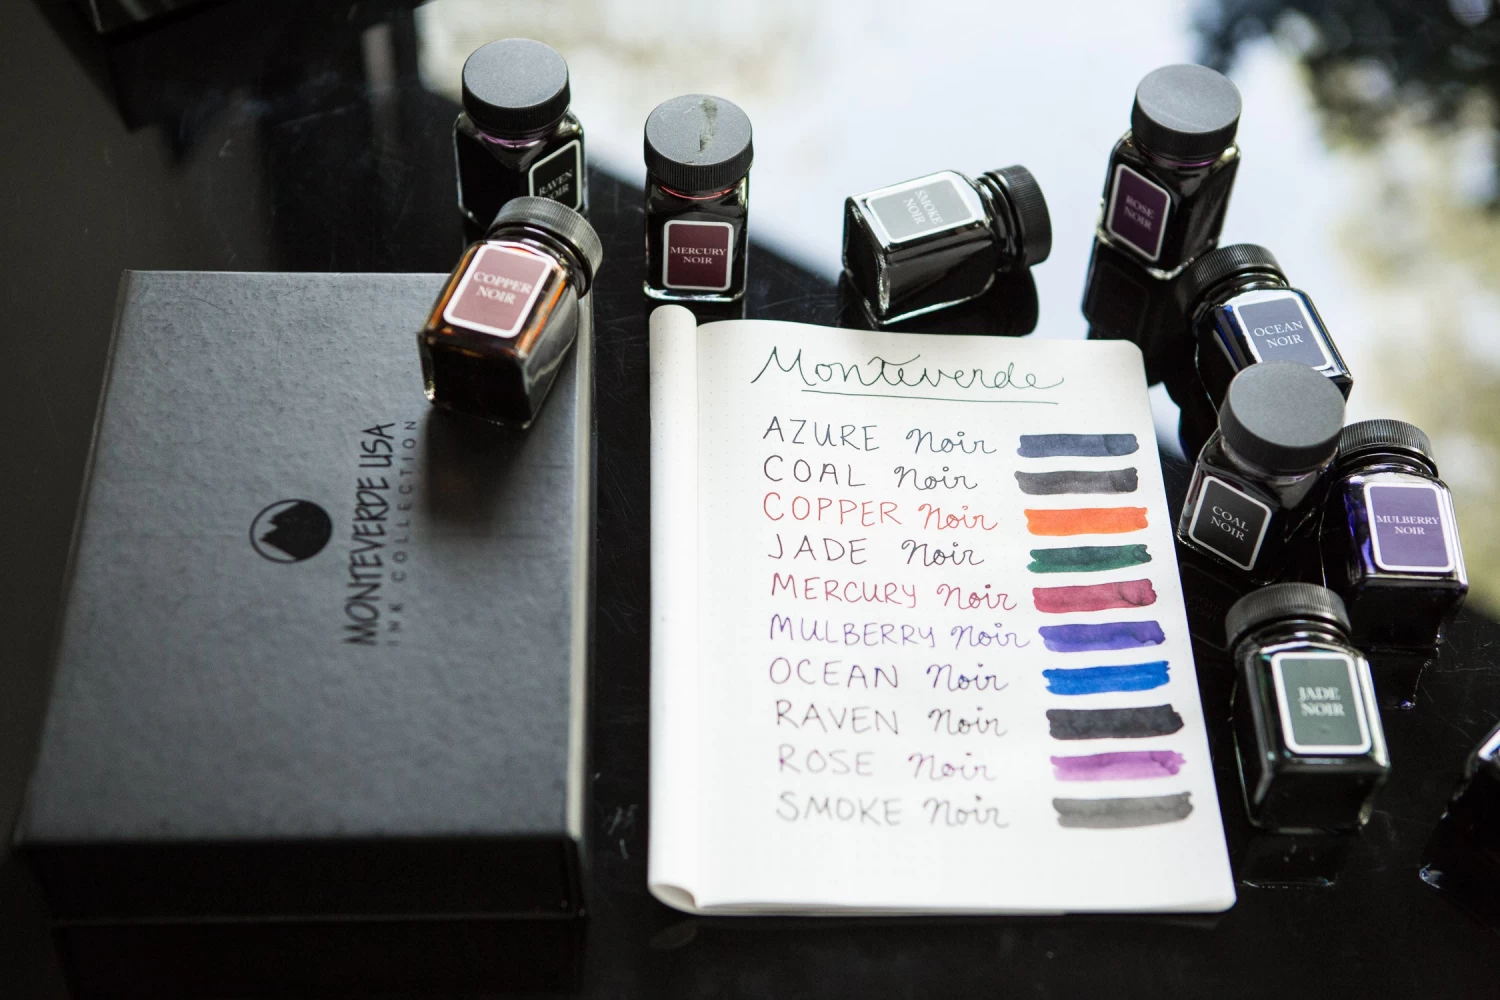 RAVEN
NOIR
COPPER
NOIR
MERCURY
NOIR
SMOKE
NOIR
ROSE
NOIR
OCEAN
NOIR
COAL
NOIR
MULBERRY
NOIR
JADE
NOIR
MONTEVERDE USA
INK COLLECTION
Monteverde
AZURE Noir
COAL Noir
COPPER Noir
JADE Noir
MERCURY Noir
MULBERRY Noir
OCEAN Noir
RAVEN Noir
ROSE Noir
SMOKE Noir